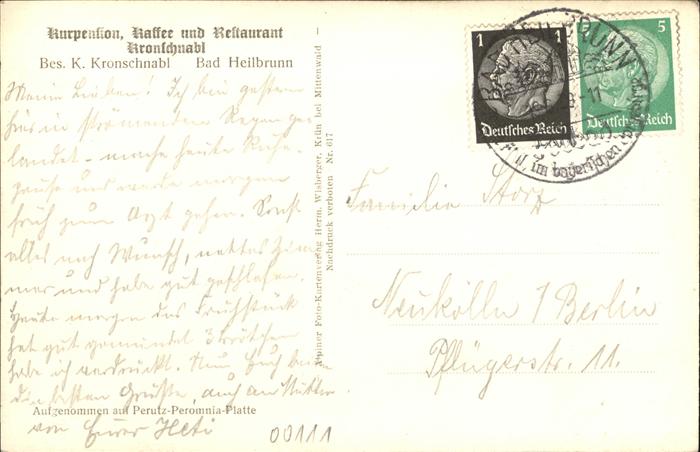 Kurpension, Kaffee und Restaurant
Kronschnabl
Bes. K. Kronschnabl Bad Heilbrunn
Meine Lieben! Ich bin gestern
hier in strömendem Regen ge
landet - mache heute Ruhe-
pause und werde morgen
früh zum Arzt gehen. Sonst
alles nach Wunsch, nettes Zim
mer und habe gut geschlafen.
Heute morgen das Frühstück
hat gut gemundet 3 Brötchen
habe ich verdrückt. Nun Euch
die besten Grüße, auch an Mutter
von Eurer Heti
Aufgenommen auf Perutz-Peromnia-Platte
Alpiner Foto-Kartenverlag Herm. Wisberger, Krün bei Mittenwald -
Nachdruck verboten Nr. 617
1
Deutsches Reich
5
Deutsches Reich
BAD HEILBRUNN
im bayerischen
Familie Storz
Neukölln / Berlin
Pflügerstr. 11.
00111